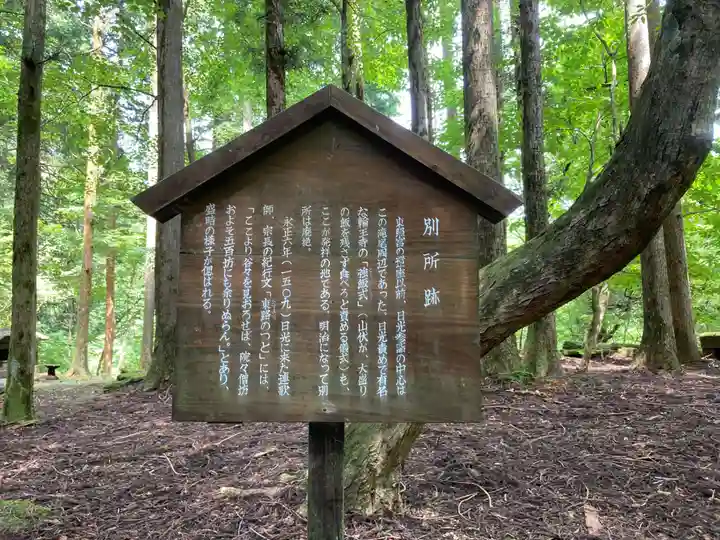 別所跡
東照宮の造営以前、日光参詣の中心は
この滝尾周辺であった。日光責めで有名
な輪王寺の「強飯式」(山伏が、大盛り
の飯を残さず食べろと責める儀式)も、
ここが発祥の地である。明治になって別
所は廃絶。
永正六年(一五〇九)日光に来た連歌
師、宗長の紀行文、「東路のつと」には、
「ここより谷々を見おろせば、院々僧坊
およそ五百坊にも余りぬらん。」とあり、
盛時の様子が偲ばれる。